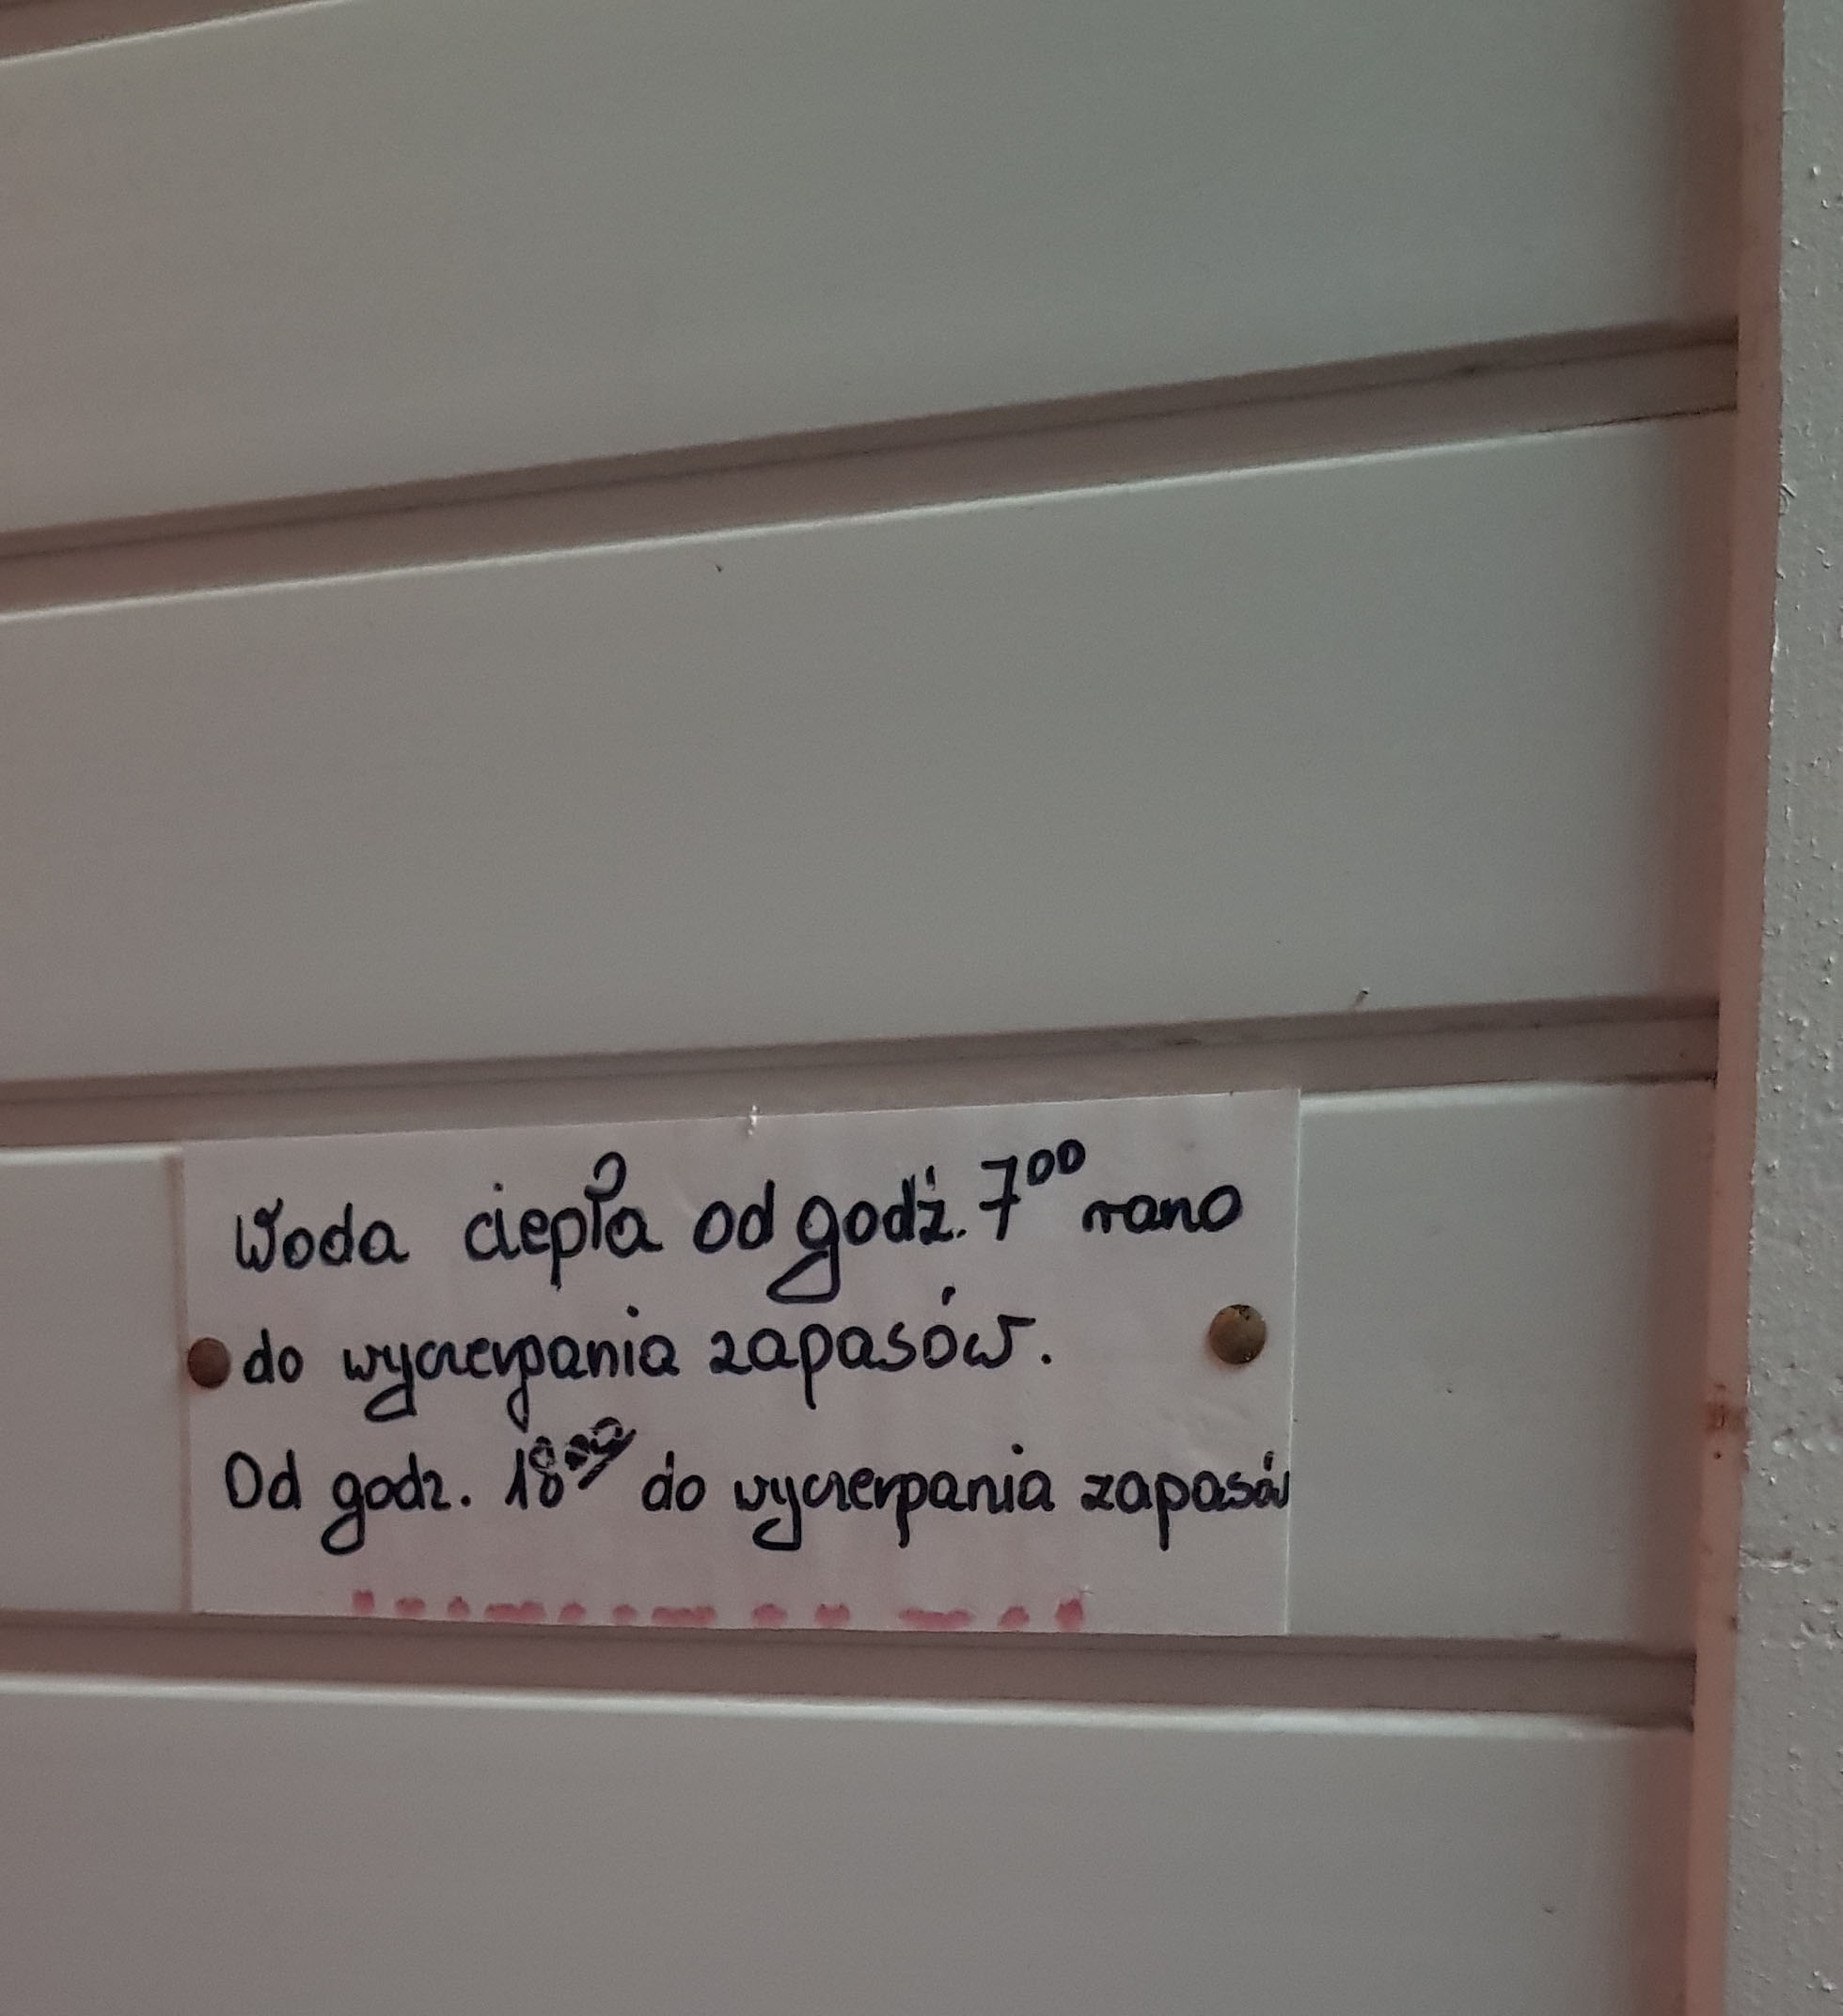 Woda ciepła od godż. 7⁰⁰ rano
do wyczerpania zapasów.
Od godz. 18 do wyczerpania zapasów